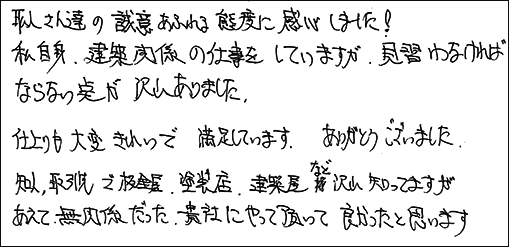 職人さん達の誠意あふれる態度に感心しました!
私自身、建築関係の仕事をしていますが、見習わなければ
ならない点が沢山ありました。
仕上りも大変きれいで満足しています。ありがとうございました。
知人、取引先で板金屋、塗装店、建築屋など沢山知ってますが
あえて無関係だった貴社にやって頂いて良かったと思います